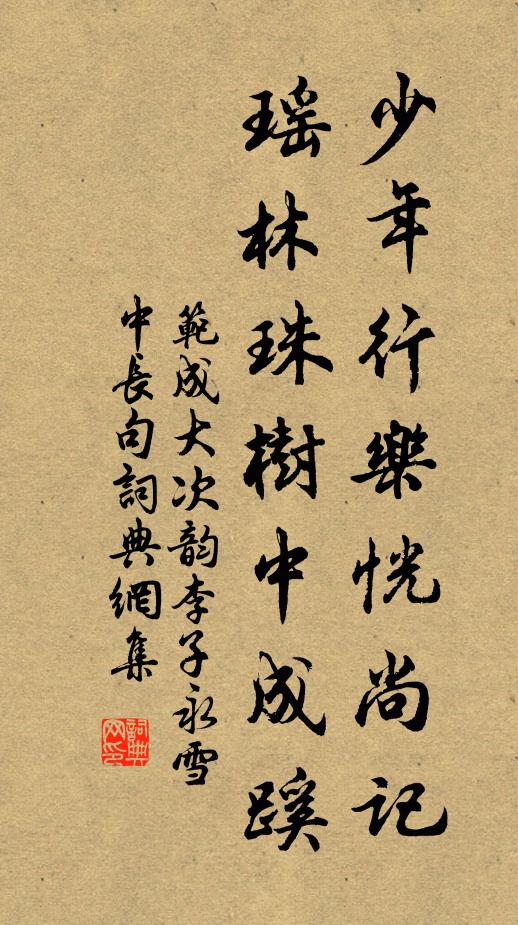 少年行樂恍尚記
瑶林珠樹中成蹊
範成大次韵李子永雪
中長句詞典網集
詞典
网印